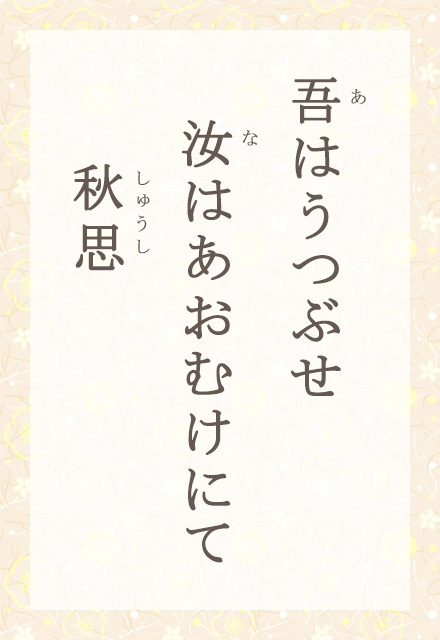 吾はうつぶせ
あ
汝はあおむけにて
な
秋思
しゅうし